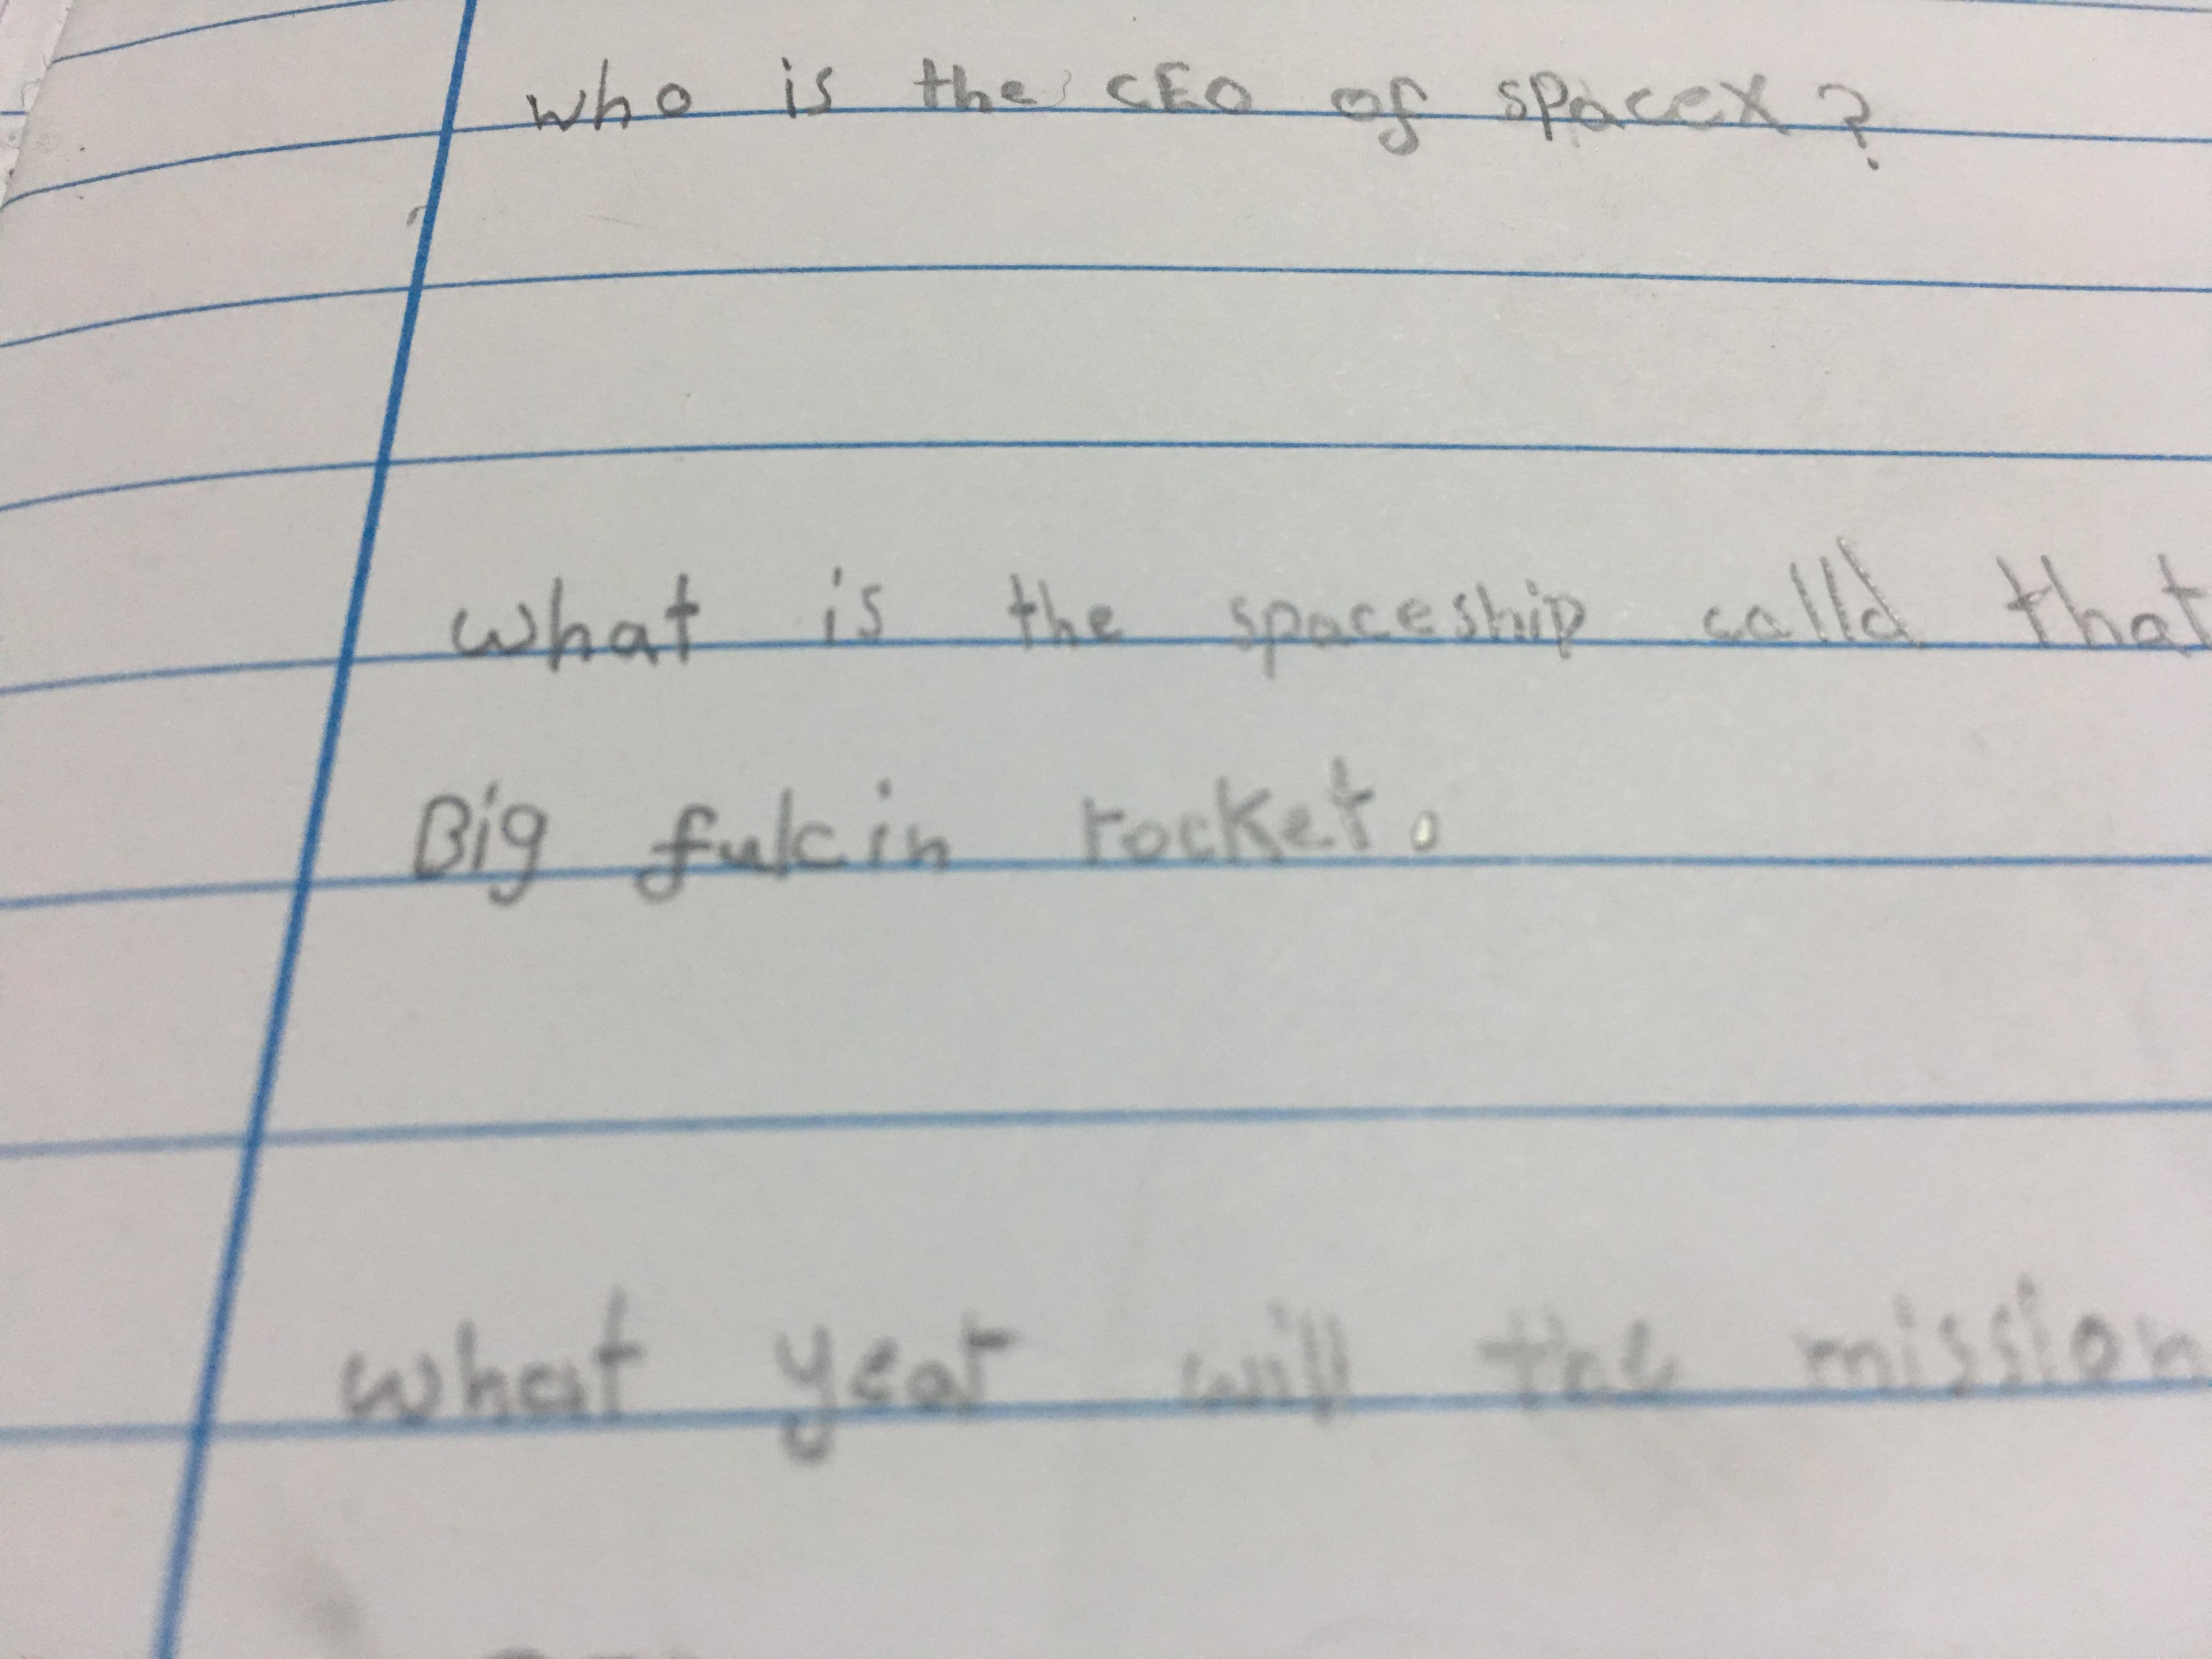 who is the CEO of spacex?
what is the spaceship calld that
Big fulcin rocket.
what year will the mission